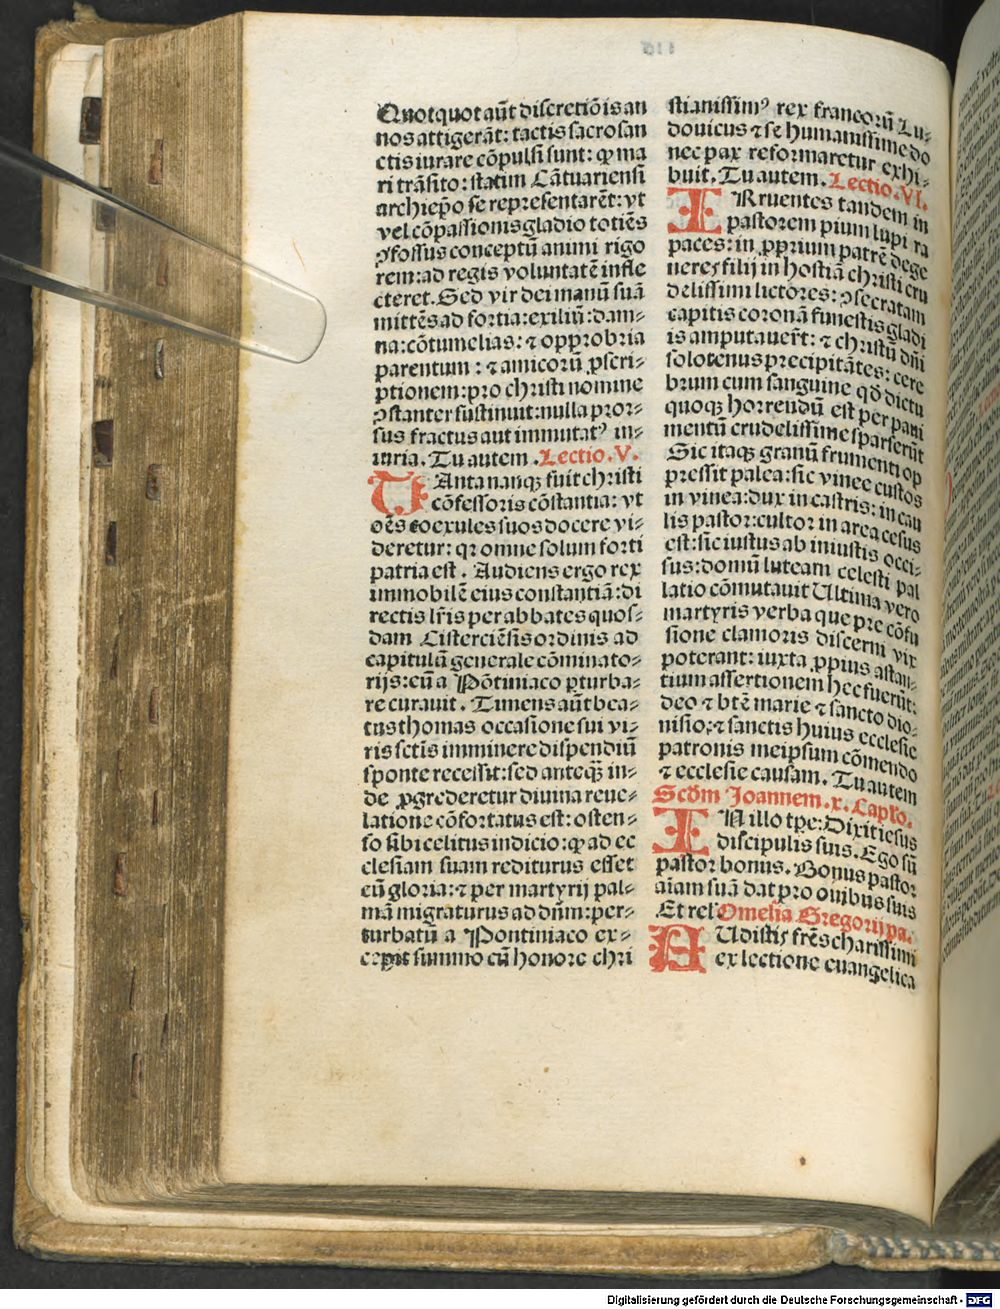 Quotquot aūt discretiōis an
nos attigerāt: tactis sacrosan
ctis iurare cōpulsi sunt: ꝙ ma
ri trāsito: statim Cātuariensi
archiep̄o se representarēt: vt
vel cōpassionis gladio totiēs
ꝯfossus conceptū animi rigo
rem: ad regis voluntatē infle
cteret. Sed vir dei manū suā
mittēs ad fortia: exiliū: dam⸗
na: cōtumelias: ⁊ opprobria
parentum: ⁊ amicorū ꝓscri⸗
ptionem: pro christi nomine
ꝯstanter sustinuit: nulla pror⸗
sus fractus aut immutatꝰ in⸗
iuria. Tu autem. Lectio. V.
TAnta nanqꝫ fuit christi
cōfessoris cōstantia: vt
oēs coexules suos docere vi⸗
deretur: qꝛ omne solum forti
patria est. Audiens ergo rex
immobilē eius constantiā: di
rectis lr̄is per abbates quos⸗
dam Cisterciēsis ordinis ad
capitulū generale cōminato⸗
rijs: eū a Pōtiniaco ꝑturba⸗
re curauit. Timens aūt bea⸗
tus thomas occasione sui vi⸗
ris sctīs imminere dispendiū
sponte recessit: sed anteqꝫ̄ in⸗
de ꝓgrederetur diuina reue⸗
latione cōfortatus est: osten⸗
so sibi celitus indicio: ꝙ ad ec
clesiam suam rediturus esset
cū gloria: ⁊ per martyrij pal⸗
mā migraturus ad dn̄m: per⸗
turbatū a Pontiniaco ex⸗
cepit summo cū honore chri
stianissimꝰ rex francorū Lu⸗
douicus ⁊ se humanissime do
nec pax reformaretur exhi⸗
buit. Tu autem. Lectio. VI.
IRruentes tandem in
pastorem pium lupi ra
paces: in ꝓprium patrē dege
neres filij in hostiā christi cru
delissimi lictores: ꝯsecratam
capitis coronā funestis gladi
is amputauer̄t: ⁊ christū dn̄i
solotenus precipitātes: cere
brum cum sanguine qd̄ dictu
quoqꝫ horrendū est per paui
mentū crudelissime sparserūt
Sic itaqꝫ granū frumenti op
pressit palea: sic vinee custos
in vinea: dux in castris: in cau
lis pastor: cultor in area cesus
est: sic iustus ab iniustis occi⸗
sus: domū luteam celesti pal
latio cōmutauit Ultima vero
martyris verba que pre cōfu
sione clamoris discerni vix
poterant: iuxta ꝓpius astan⸗
tium assertionem hec fuerūt:
deo ⁊ btē marie ⁊ sancto dio⸗
nisio: ⁊ sanctis huius ecclesie
patronis meipsum cōmendo
⁊ ecclesie causam. Tu autem
Scd̄m Joannem. x. Capłō.
IN illo tp̄e: Dixit iesus
discipulis suis. Ego sū
pastor bonus. Bonus pastor
aīam suā dat pro ouibus suis
Et rel' Omelia Gregorij pa.
AUdistis fr̄es charissimi
ex lectione euangelica
Digitalisierung gefördert durch die Deutsche Forschungsgemeinschaft - DFG